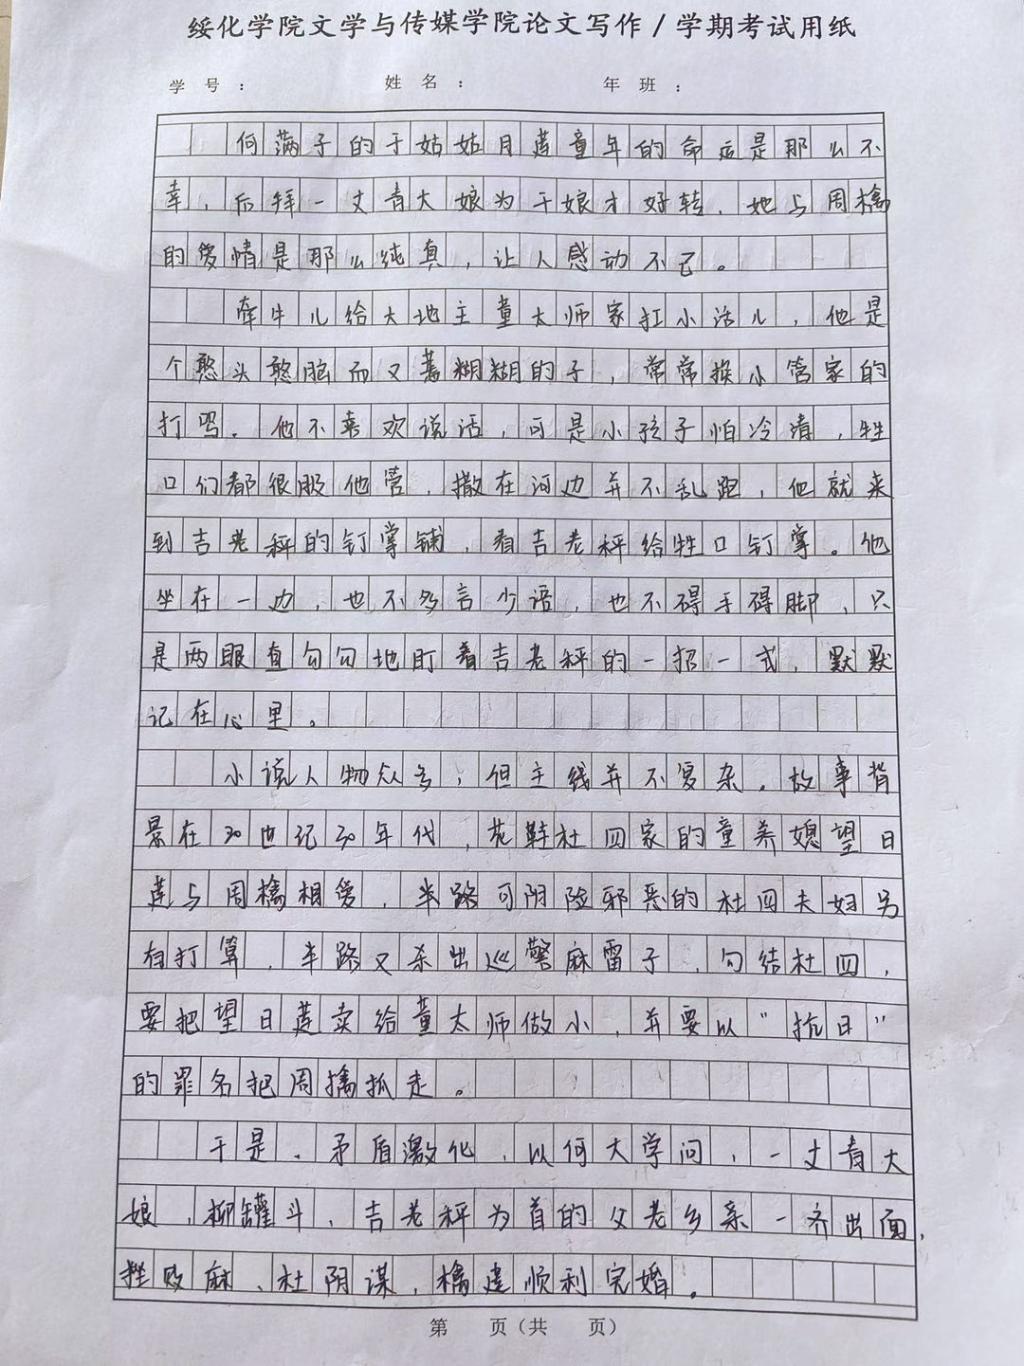 绥化学院文学与传媒学院论文写作/学期考试用纸
学号： 姓名： 年班：
何满子的干姑姑月莲童年的命运是那么不
幸，后拜一丈青大娘为干娘才好转，她与周檎
的爱情是那么纯真，让人感动不已。
牵牛儿给大地主童太师家扛小活儿，他是
个憨头憨脑而又蔫糊糊的子，常常挨小管家的
打骂。他不喜欢说话，可是小孩子怕冷清，牲
口们都很服他管，撒在河边并不乱跑，他就来
到吉老秤的钉掌铺，看吉老秤给牲口钉掌。他
坐在一边，也不多言少语，也不碍手碍脚，只
是两眼直勾勾地盯着吉老秤的一招一式，默默
记在心里。
小说人物众多，但主线并不复杂。故事背
景在20世记30年代，花鞋杜四家的童养媳望日
莲与周檎相爱，半路可阴险邪恶的杜四夫妇另
有打算，半路又杀出巡警麻雷子，勾结杜四，
要把望日莲卖给董太师做小，并要以“抗日”
的罪名把周擒抓走。
于是，矛盾激化，以何大学问，一丈青大
娘，柳罐斗，吉老秤为首的父老乡亲一齐出面，
挫败麻、杜阴谋，檎莲顺利完婚。
第 页（共 页）